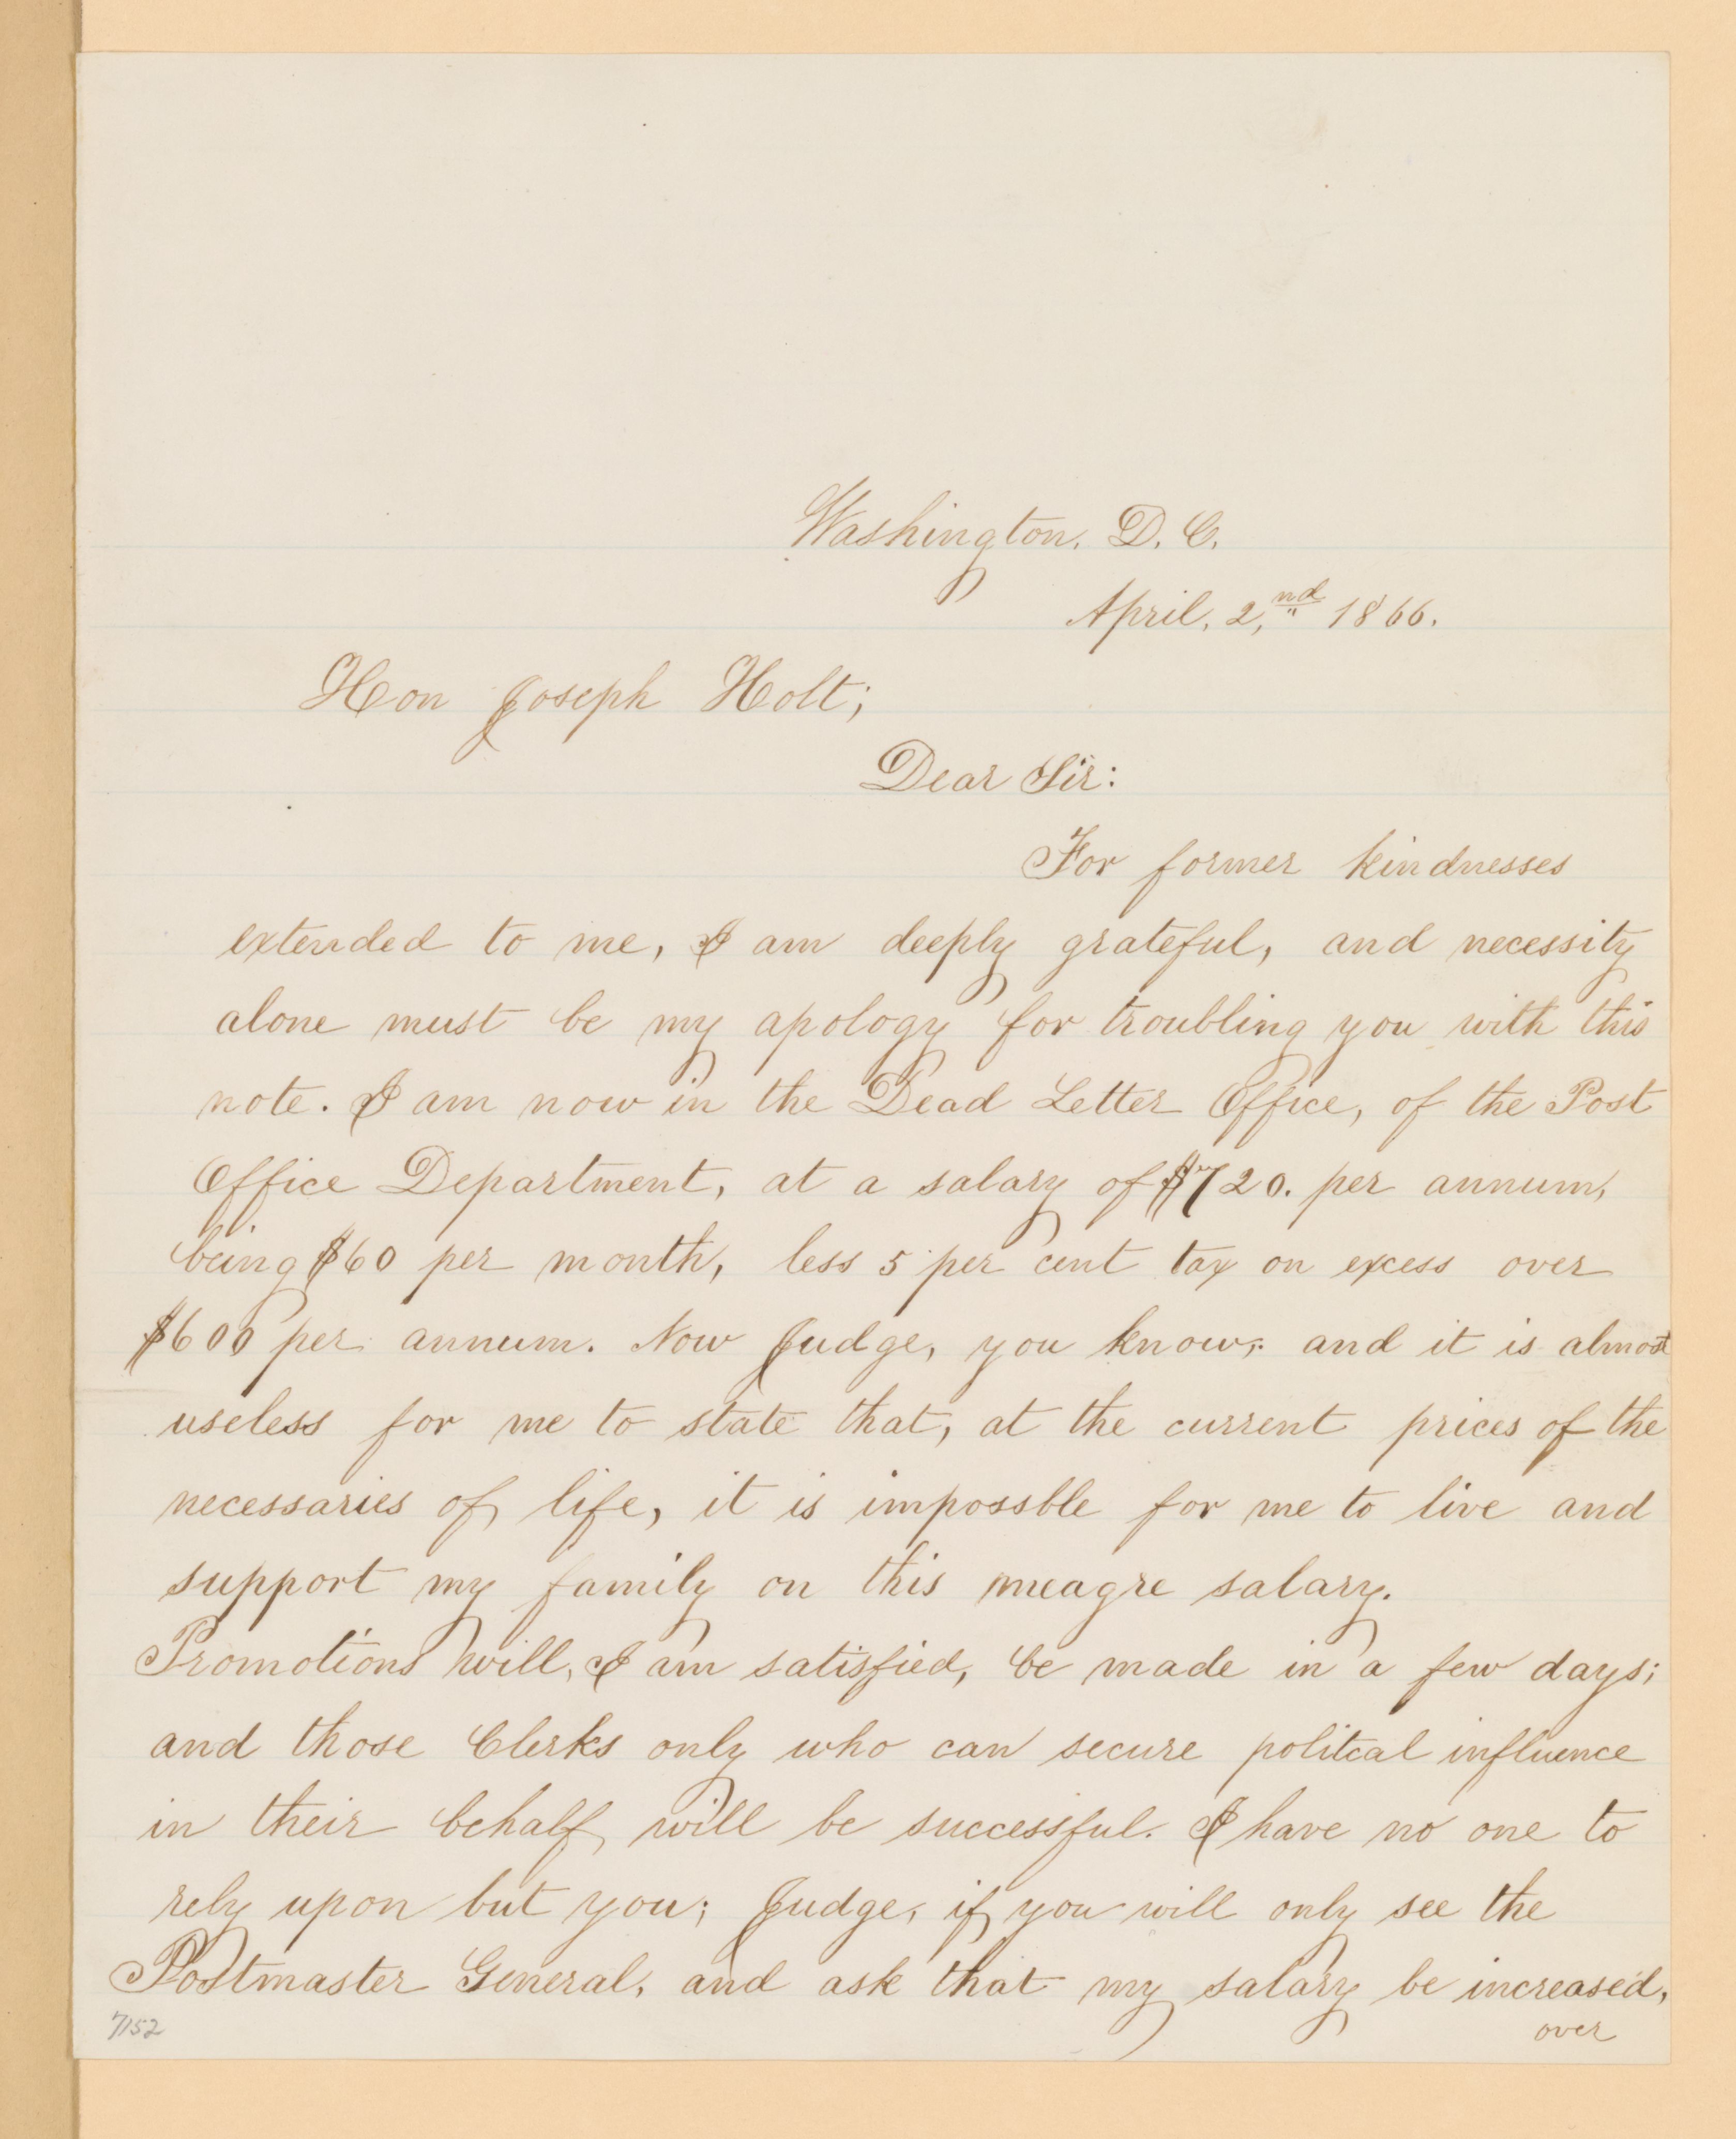 Washington. D. C.
April. 2,nd 1866.
Hon Joseph Holt;
Dear Sir:
For former kindnesses
extended to me, I am deeply grateful, and necessity
alone must be my apology for troubling you with this
note. I am now in the Dead Letter Office, of the Post
Office Department, at a salary of $720. per annum,
being $60 per month, less 5 per cent tax on excess over
$600 per annum. Now Judge, you know, and it is almost
useless for me to state that, at the current prices of the
necessaries of life, it is impossble for me to live and
support my family on this meagre salary.
Promotions will, I am satisfied, be made in a few days;
and those Clerks only who can secure politcal influence
in their behalf, will be successful. I have no one to
rely upon but you; Judge, if you will only see the
Postmaster General, and ask that my salary be increased,
over
7152